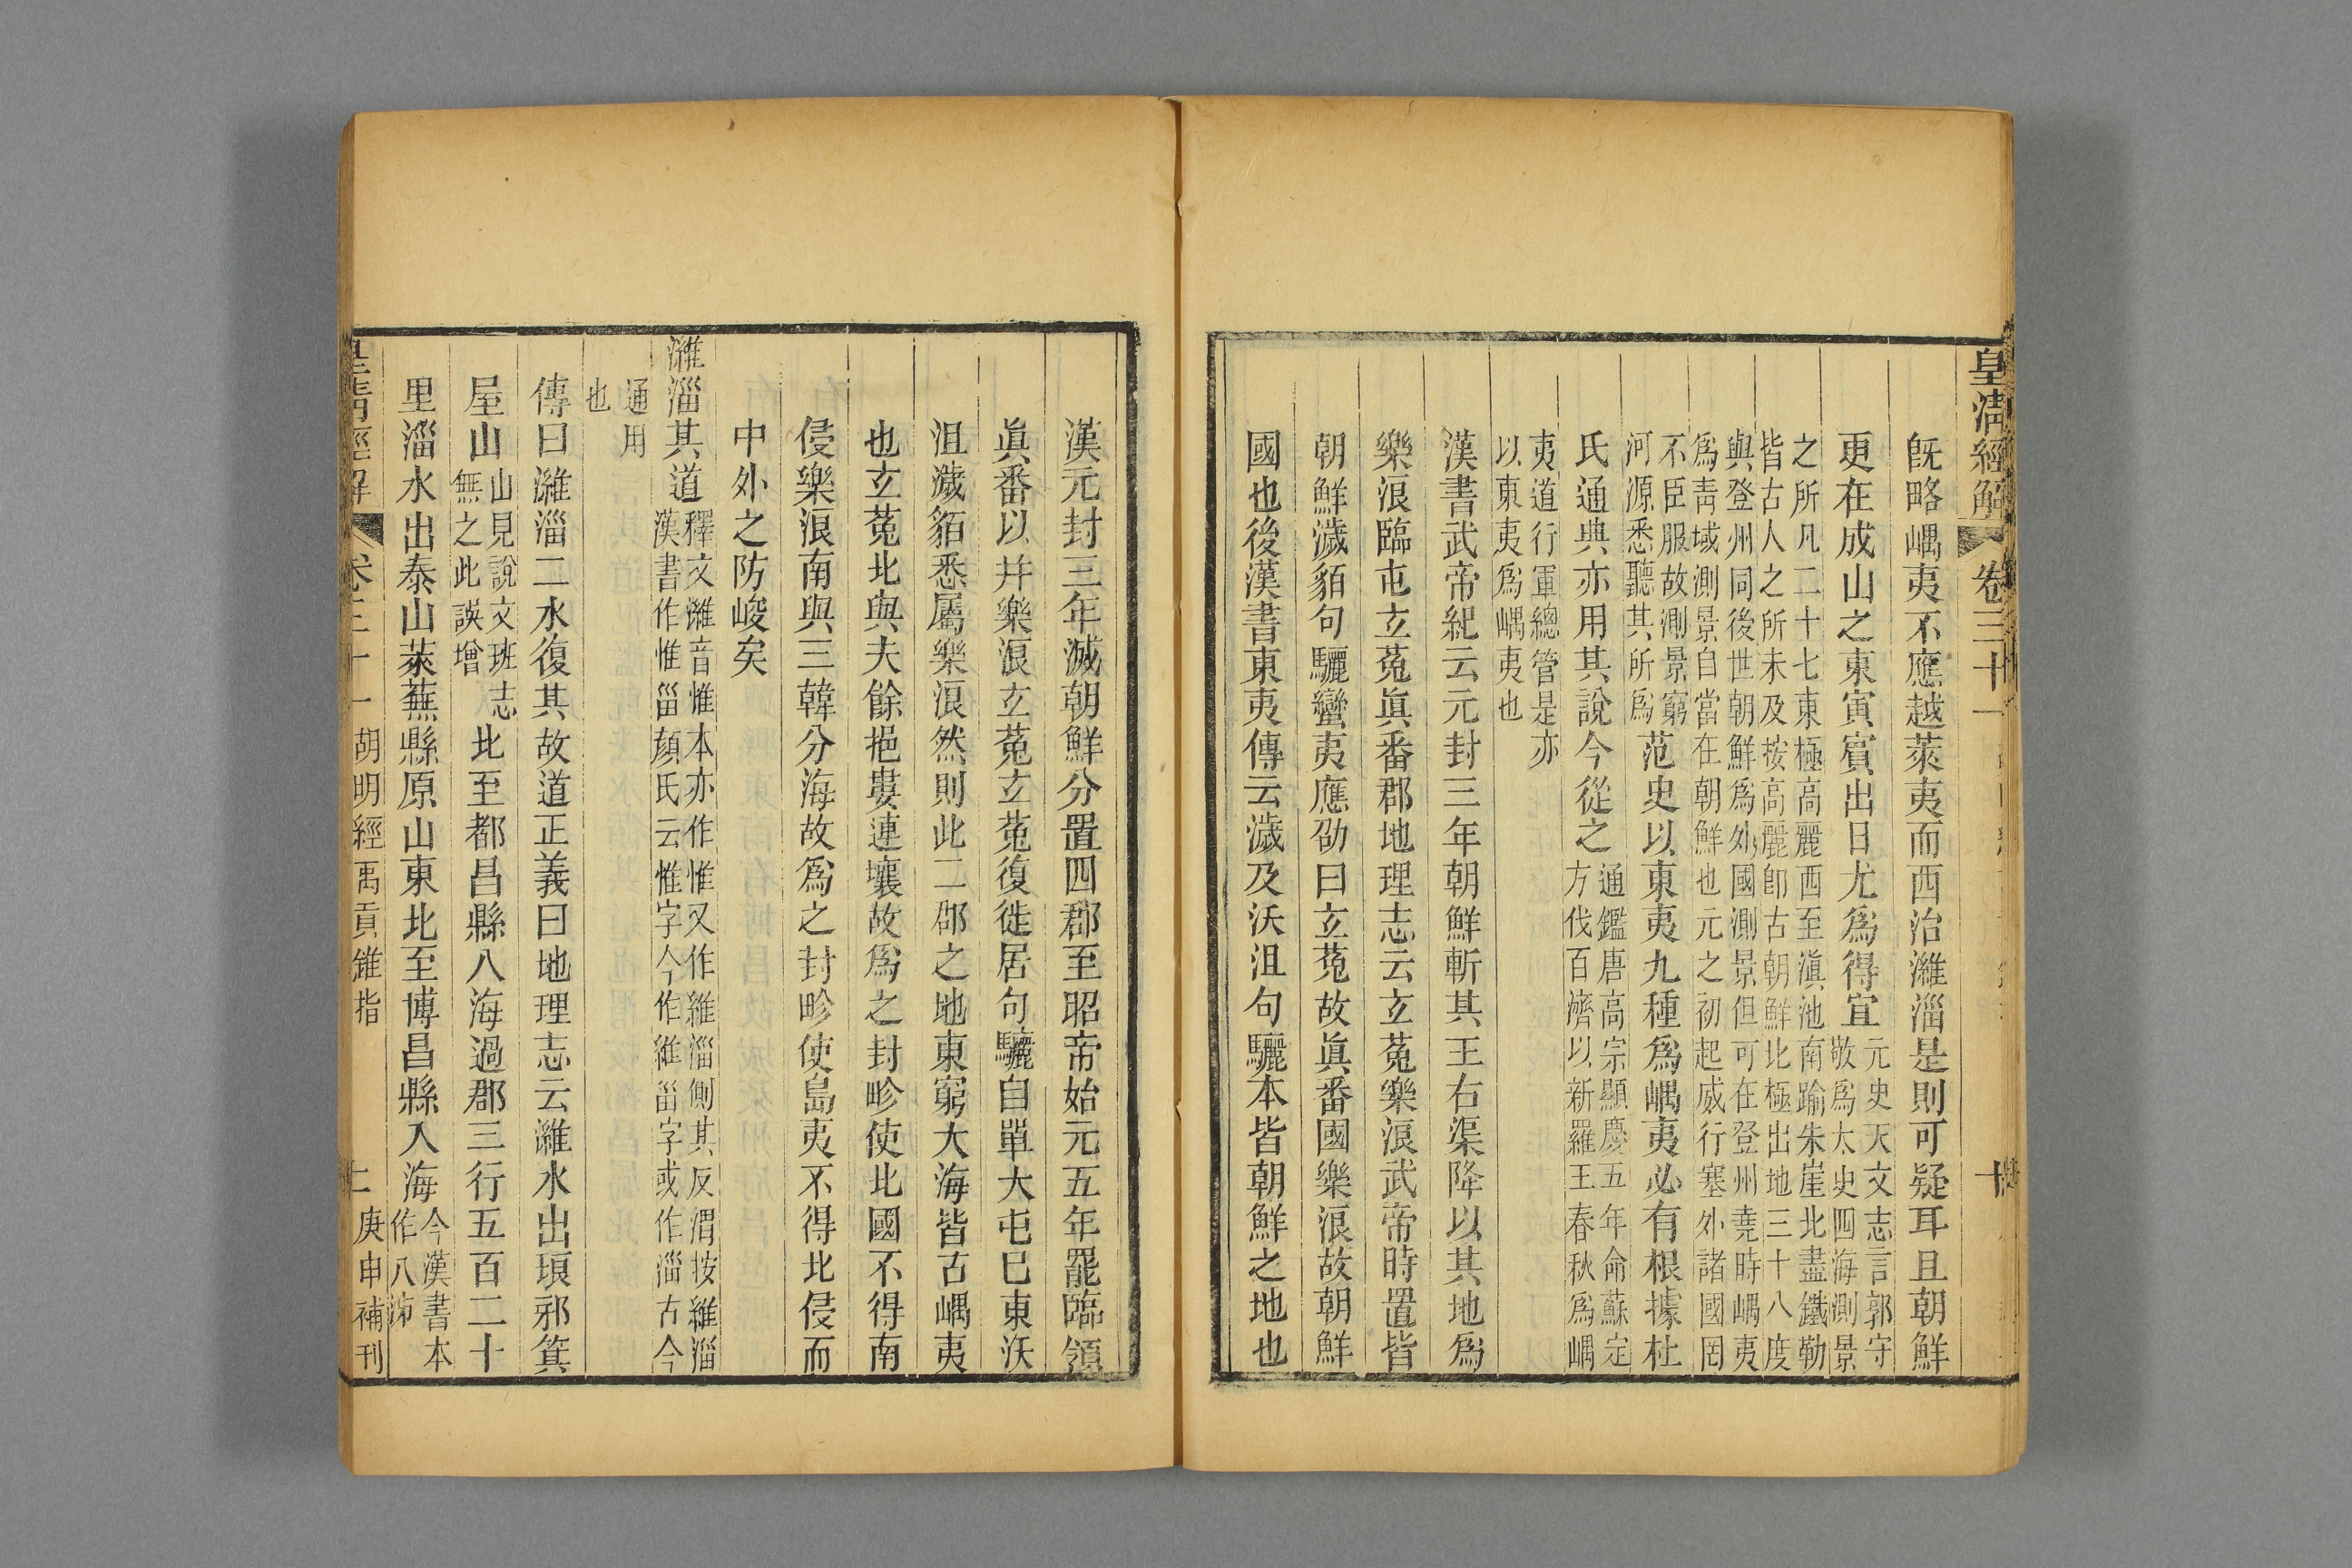 皇清經解 卷三十一 十
既略嵎夷不應越萊夷而西治濰淄是則可疑耳且朝鮮
更在成山之東寅賓出日尤爲得宜
元史天文志言郭守
敬爲太史四海測景
之所凡二十七東極高麗西至滇池南踰朱崖北盡鐵勒
皆古人之所未及按高麗卽古朝鮮北極出地三十八度
與登州同後世朝鮮爲外國測景但可在登州堯時嵎夷
爲靑域測景自當在朝鮮也元之初起威行塞外諸國罔
不臣服故測景窮
河源悉聽其所爲
范史以東夷九種爲嵎夷必有根據杜
氏通典亦用其說今從之
通鑑唐高宗顯慶五年命蘇定
方伐百濟以新羅王春秋爲嵎
夷道行軍總管是亦
以東夷爲嵎夷也
漢書武帝紀云元封三年朝鮮斬其王右渠降以其地爲
樂浪臨屯玄菟眞番郡地理志云玄菟樂浪武帝時置皆
朝鮮濊貊句驪蠻夷應劭曰玄菟故眞番國樂浪故朝鮮
國也後漢書東夷傳云濊及沃沮句驪本皆朝鮮之地也
漢元封三年滅朝鮮分置四郡至昭帝始元五年罷臨領
眞番以幷樂浪玄菟玄菟復徙居句驪自單大屯巳東沃
沮濊貊悉屬樂浪然則此二郡之地東窮大海皆古嵎夷
也玄菟北與夫餘挹婁連壤故爲之封畛使北國不得南
侵樂浪南與三韓分海故爲之封畛使島夷不得北侵而
中外之防峻矣
濰淄其道
釋文濰音惟本亦作惟又作維淄側其反渭按維淄
漢書作惟甾顏氏云惟字今作維甾字或作淄古今
通用
也
傳曰濰淄二水復其故道正義曰地理志云濰水出琅邪箕
屋山
山見說文班志
無之此誤增
北至都昌縣入海過郡三行五百二十
里淄水出泰山萊蕪縣原山東北至博昌縣入海
今漢書本
作入泲
皇清經解 卷三十一 胡明經禹貢錐指 十一 庚申補刊